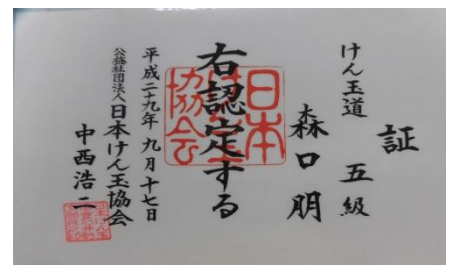 証
けん玉道 五級
森口朋
右認定する
平成二十九年 九月十七日
公益社団法人日本けん玉協会
中西浩二
日本
協会